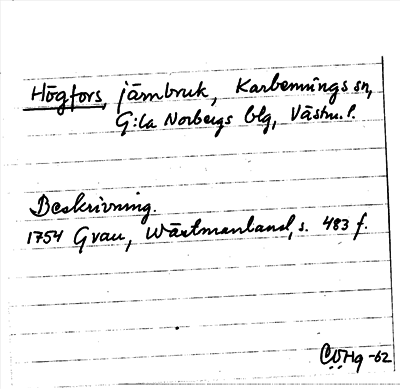 Högfors, järnbruk, Karbennings sn,
G:la Norbergs blg, Västm. l.
Beskrivning.
1754 Grau, Wästmanland, s. 483 f.
-62